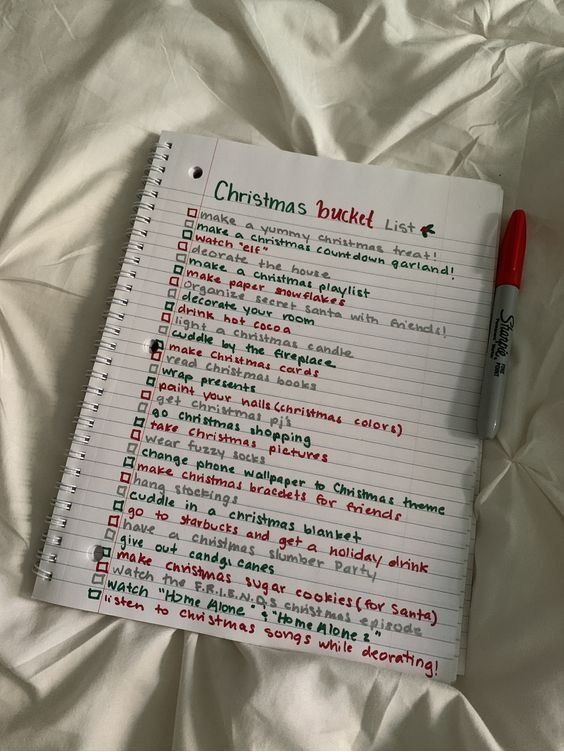 Christmas bucket List
make a yummy christmas treat!
make a christmas countdown garland!
watch "elf"
deorate the house
make a christmas playlist
make paper snowflakes
organize secret santa with friends!
decorate your room
drink hot cocoa
light a christmas candle
cuddle by the fireplace
make christmas cards
read christmas books
wrap presents
paint your nails (christmas colors)
get christmas pjs
go christmas shopping
take christmas pictures
wear fuzzy socks
change phone wallpaper to christmas theme
make christmas bracelets for friends
hang stockings
cuddle in a christmas blanket
go to starbucks and get a holiday drink
have a christmas slumber party
give out candy canes
make christmas sugar cookies (for Santa)
watch the F.R.I.E.N.D.S christmas episode
watch "Home Alone" & "Home Alone 2"
listen to christmas songs while deorating!
Sharpie